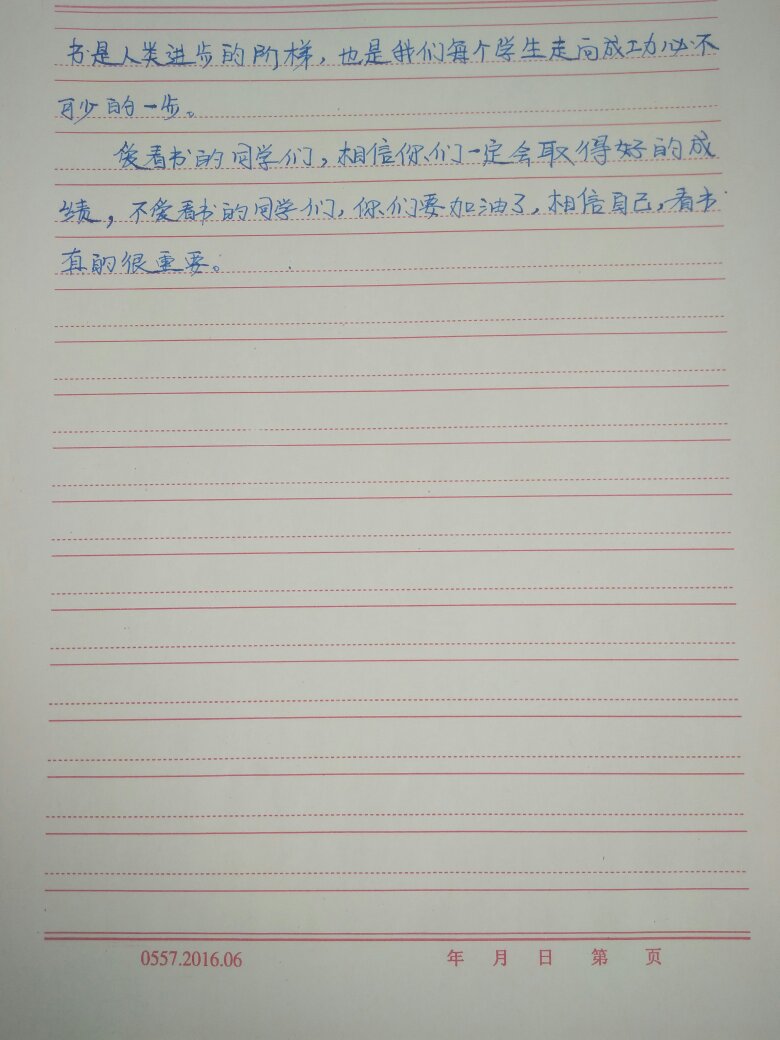 书是人类进步的阶梯，也是我们每个学生走向成功必不
可少的一步。
爱看书的同学们，相信你们一定会取得好的成
绩，不爱看书的同学们，你们要加油了，相信自己，看书
真的很重要。
0557.2016.06 年 月 日 第 页